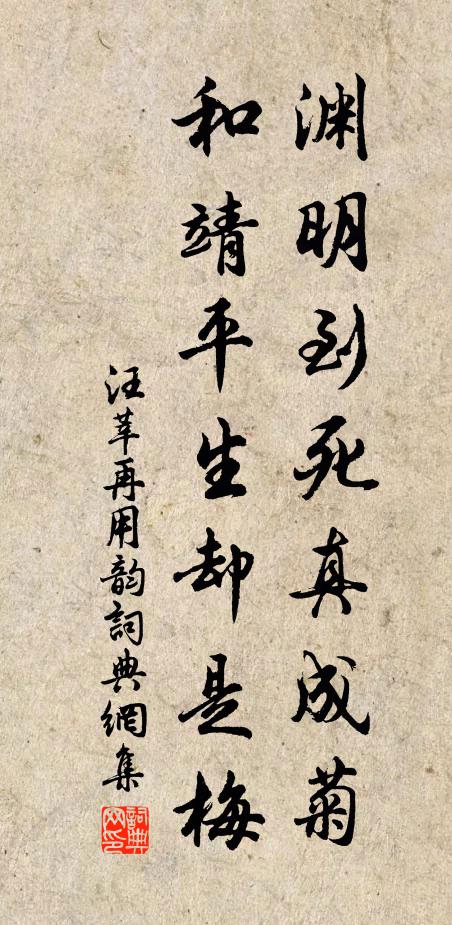 渊明到死真成菊
和靖平生却是梅
汪莘再用韵詞典網集
詞典網印